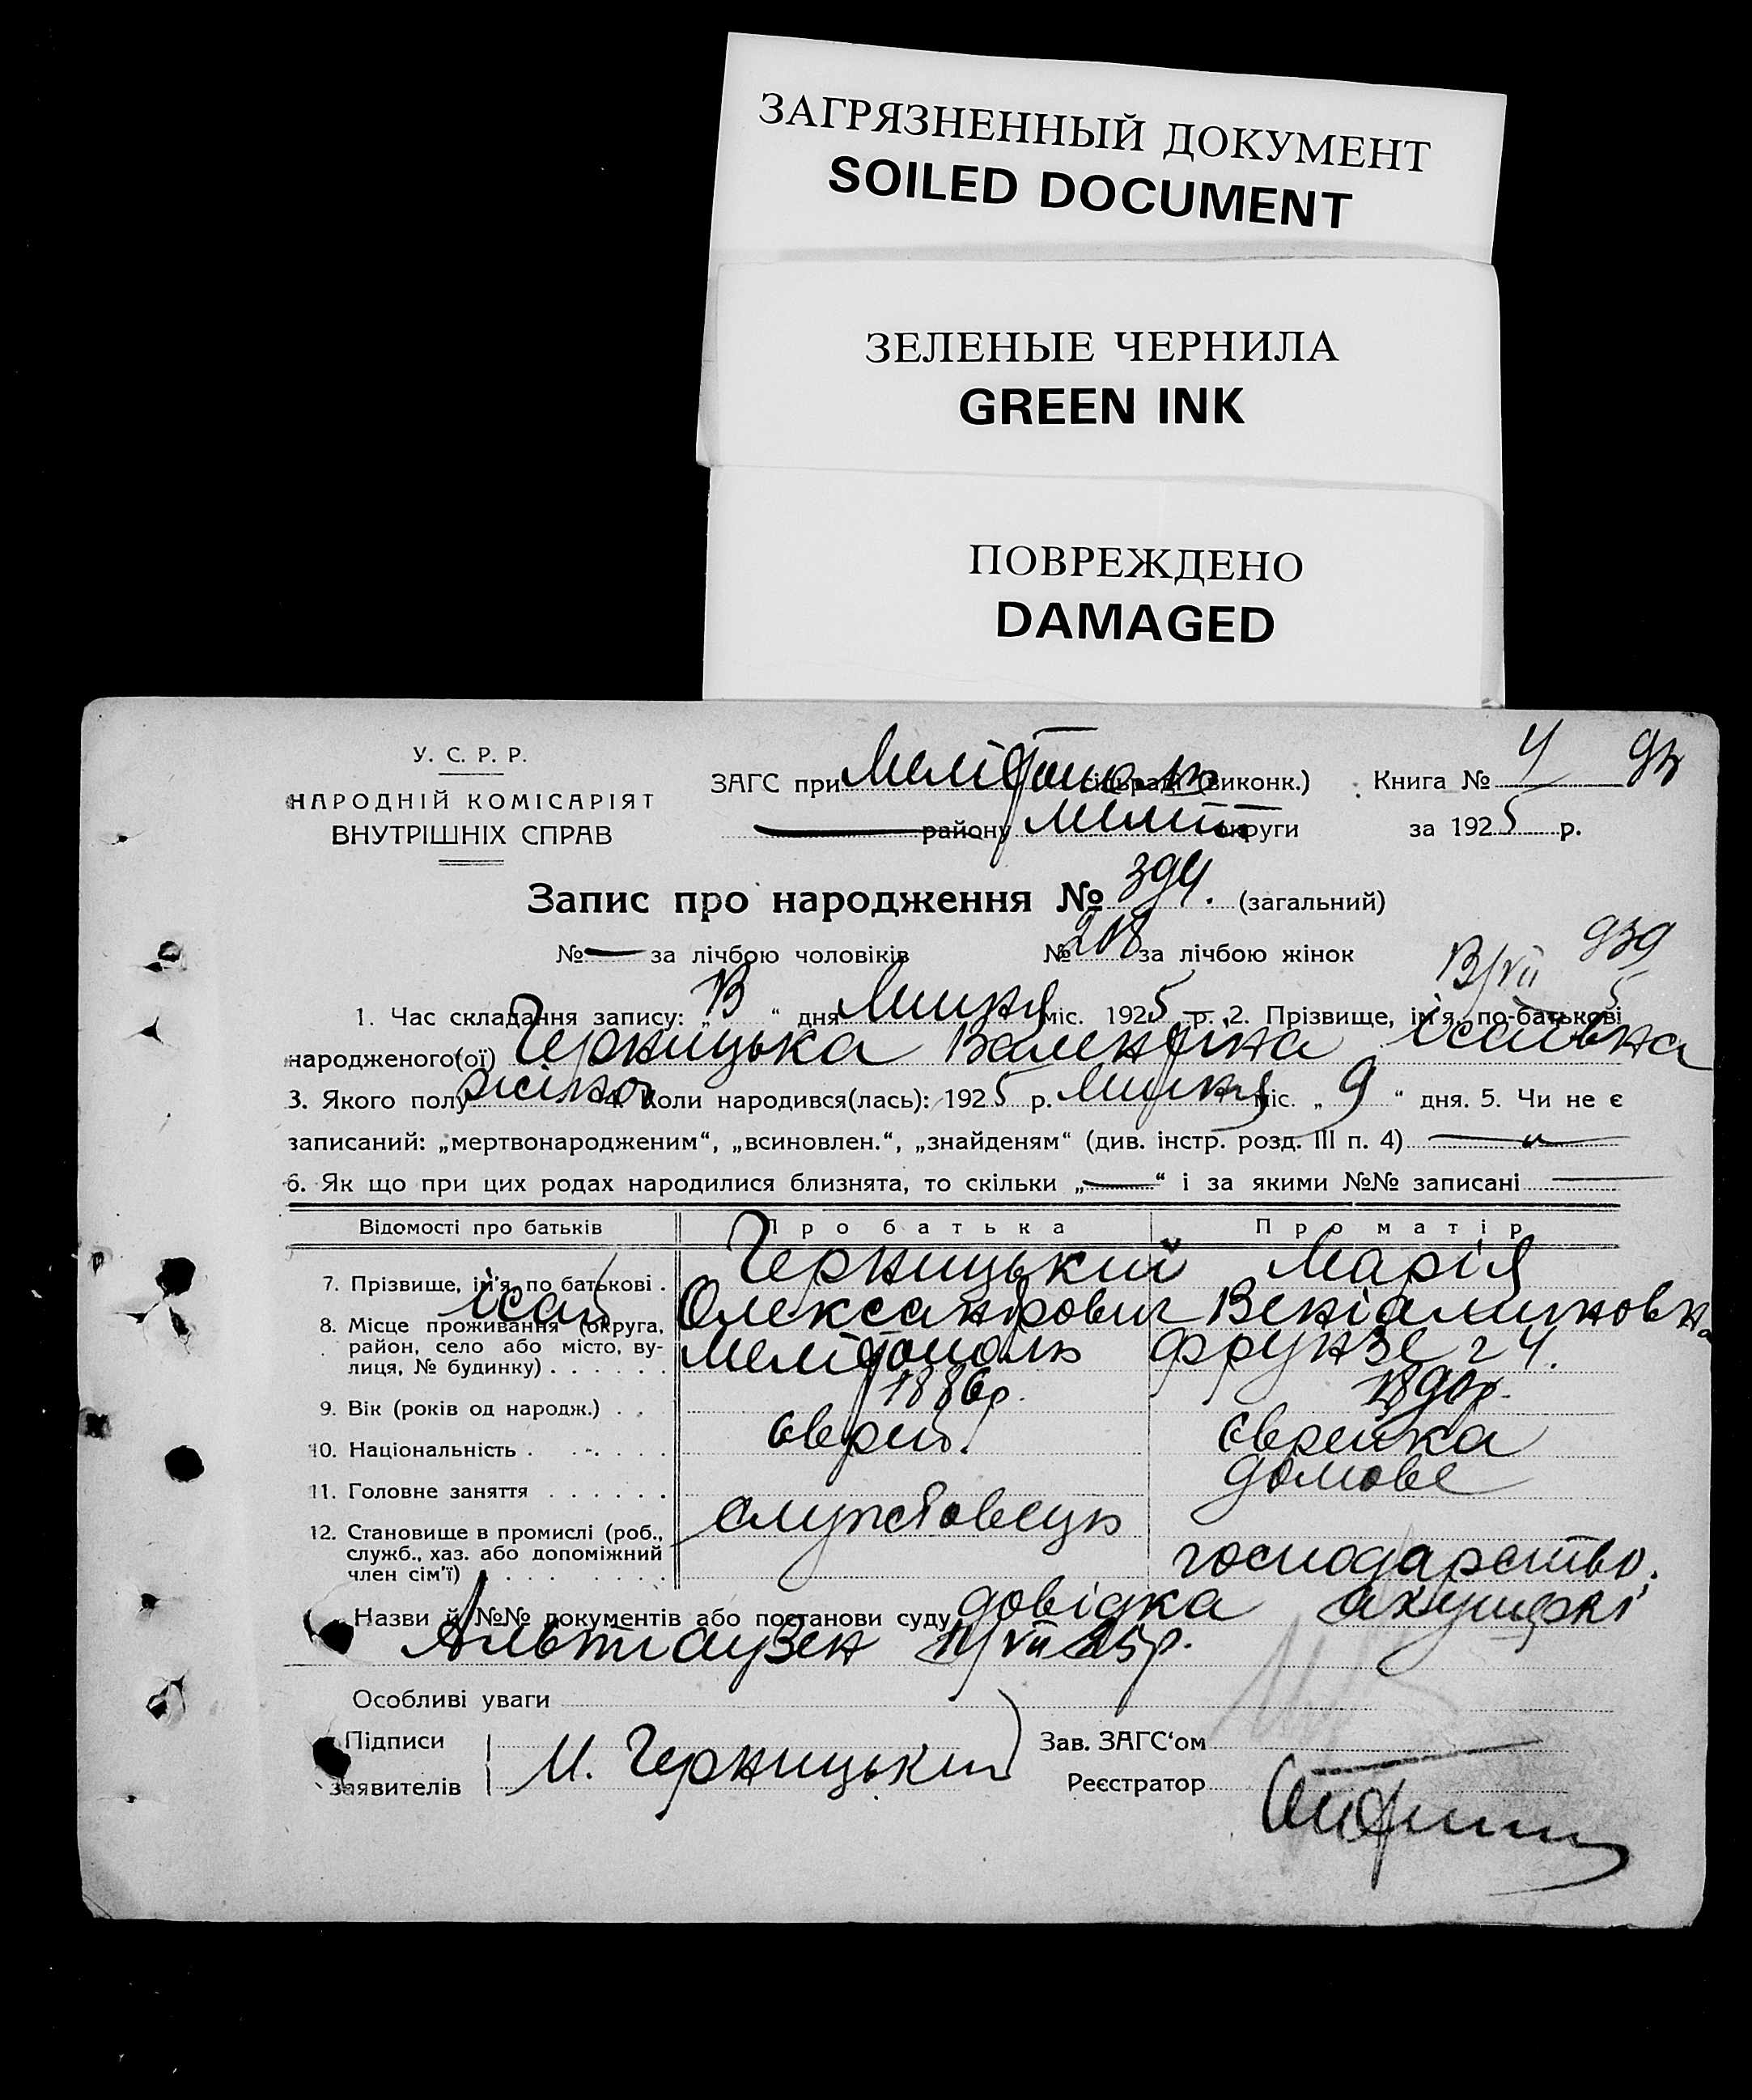 ЗАГРЯЗНЕННЫЙ ДОКУМЕНТ
SOILED DOCUMENT
ЗЕЛЕНЫЕ ЧЕРНИЛА
GREEN INK
ПОВРЕЖДЕНО
DAMAGED
У. С. Р. Р.
НАРОДНІЙ КОМІСАРІЯТ
ВНУТРІШНІХ СПРАВ
ЗАГС при Мелітополь сільраді (виконк.) Книга № 4
району Меліт округи за 1925 р.
Запис про народження № 394. (загальний)
№ — за лічбою чоловіків № 208 за лічбою жінок
939
1. Час складання запису: „ 13 “ дня Липня міс. 1925 р. 2. Прізвище, ім'я, по-батькові
народженого(ої) Черницька Валентіна Ісаївна
3. Якого полу жіноч 4. Коли народився(лась): 1925 р. Липня міс. „ 9 “ дня. 5. Чи не є
записаний: „мертвонародженим“, „всиновлен.“, „знайденям“ (див. інстр. розд. III п. 4) —
6. Як що при цих родах народилися близнята, то скільки „ — “ і за якими №№ записані —
Відомості про батьків Про батька Про матір
7. Прізвище, ім'я, по батькові . Черницький Марія
Ісай Олександрович Веніаминовна
8. Місце проживання (округа,
район, село або місто, ву-
лиця, № будинку) . . . . . . Мелітополь Фрунзе 24.
9. Вік (років од народж.) . . 1886р. 1890р.
10. Національність . . . . . Єврей. Єврейка
11. Головне заняття . . . . . . домове
12. Становище в промислі (роб., службовець
служб., хаз. або допоміжний господарство.
член сім'ї) . . . . . . . . .
Назви й №№ документів або постанови суду довідка акушерки
Альтгаузен 11/VII 25р.
Особливі уваги
Підписи
заявителів И. Черницький
Зав. ЗАГС'ом
Реєстратор